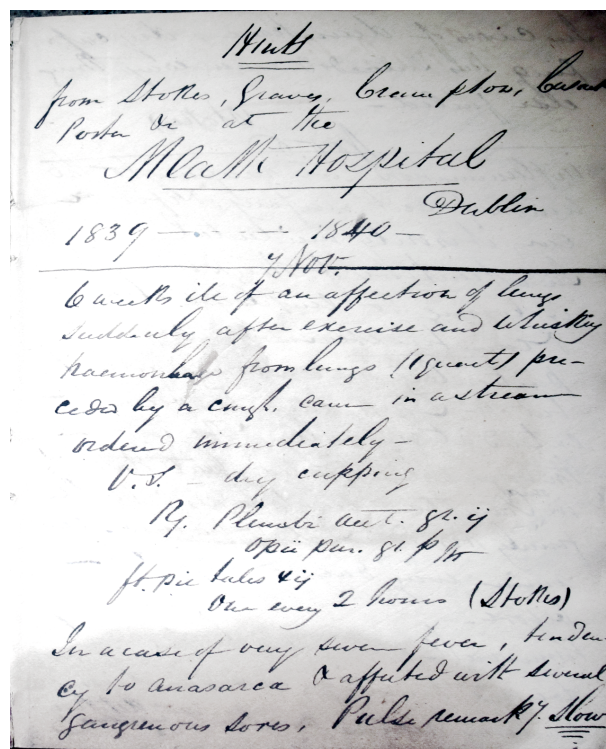 Hints
from Stokes, Graves, Crampton, Cusack
Porter &c at the
Meath Hospital
Dublin
1839 — 1840 —
7 Nov.
6 weeks ile of an affection of lungs
suddenly after exercise and whiskey
haemorrhage from lungs (1 quart) pre-
ceded by a cough. came in a stream
ordered immediately —
V.S. — dry cupping
Rx. Plumbi acet. gr. ij
opii pur. gr. ps
ft. pil tales
One every 2 hours (Stokes)
In a case of very severe fever, tenden-
cy to anasarca & affected with several
gangrenous sores, Pulse remarky. slow